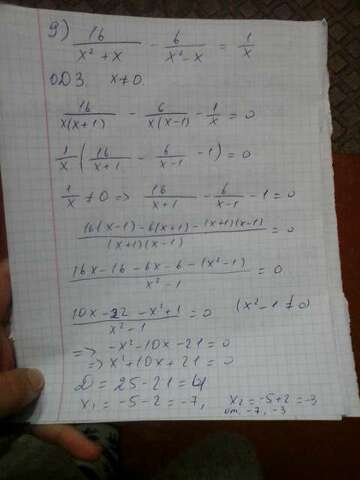 9) 16/(x² + x) - 6/(x² - x) = 1/x
ОДЗ. x ≠ 0
16/(x(x+1)) - 6/(x(x-1)) - 1/x = 0
1/x (16/(x+1) - 6/(x-1) - 1) = 0
1/x ≠ 0 => 16/(x+1) - 6/(x-1) - 1 = 0
(16(x-1) - 6(x+1) - (x+1)(x-1))/((x+1)(x-1)) = 0
(16x - 16 - 6x - 6 - (x² - 1))/(x² - 1) = 0
(10x - 22 - x² + 1)/(x² - 1) = 0 (x² - 1 ≠ 0)
=> -x² - 10x - 21 = 0
=> x² + 10x + 21 = 0
D = 25 - 21 = 4
x₁ = -5 - 2 = -7, x₂ = -5 + 2 = -3
от. -7, -3